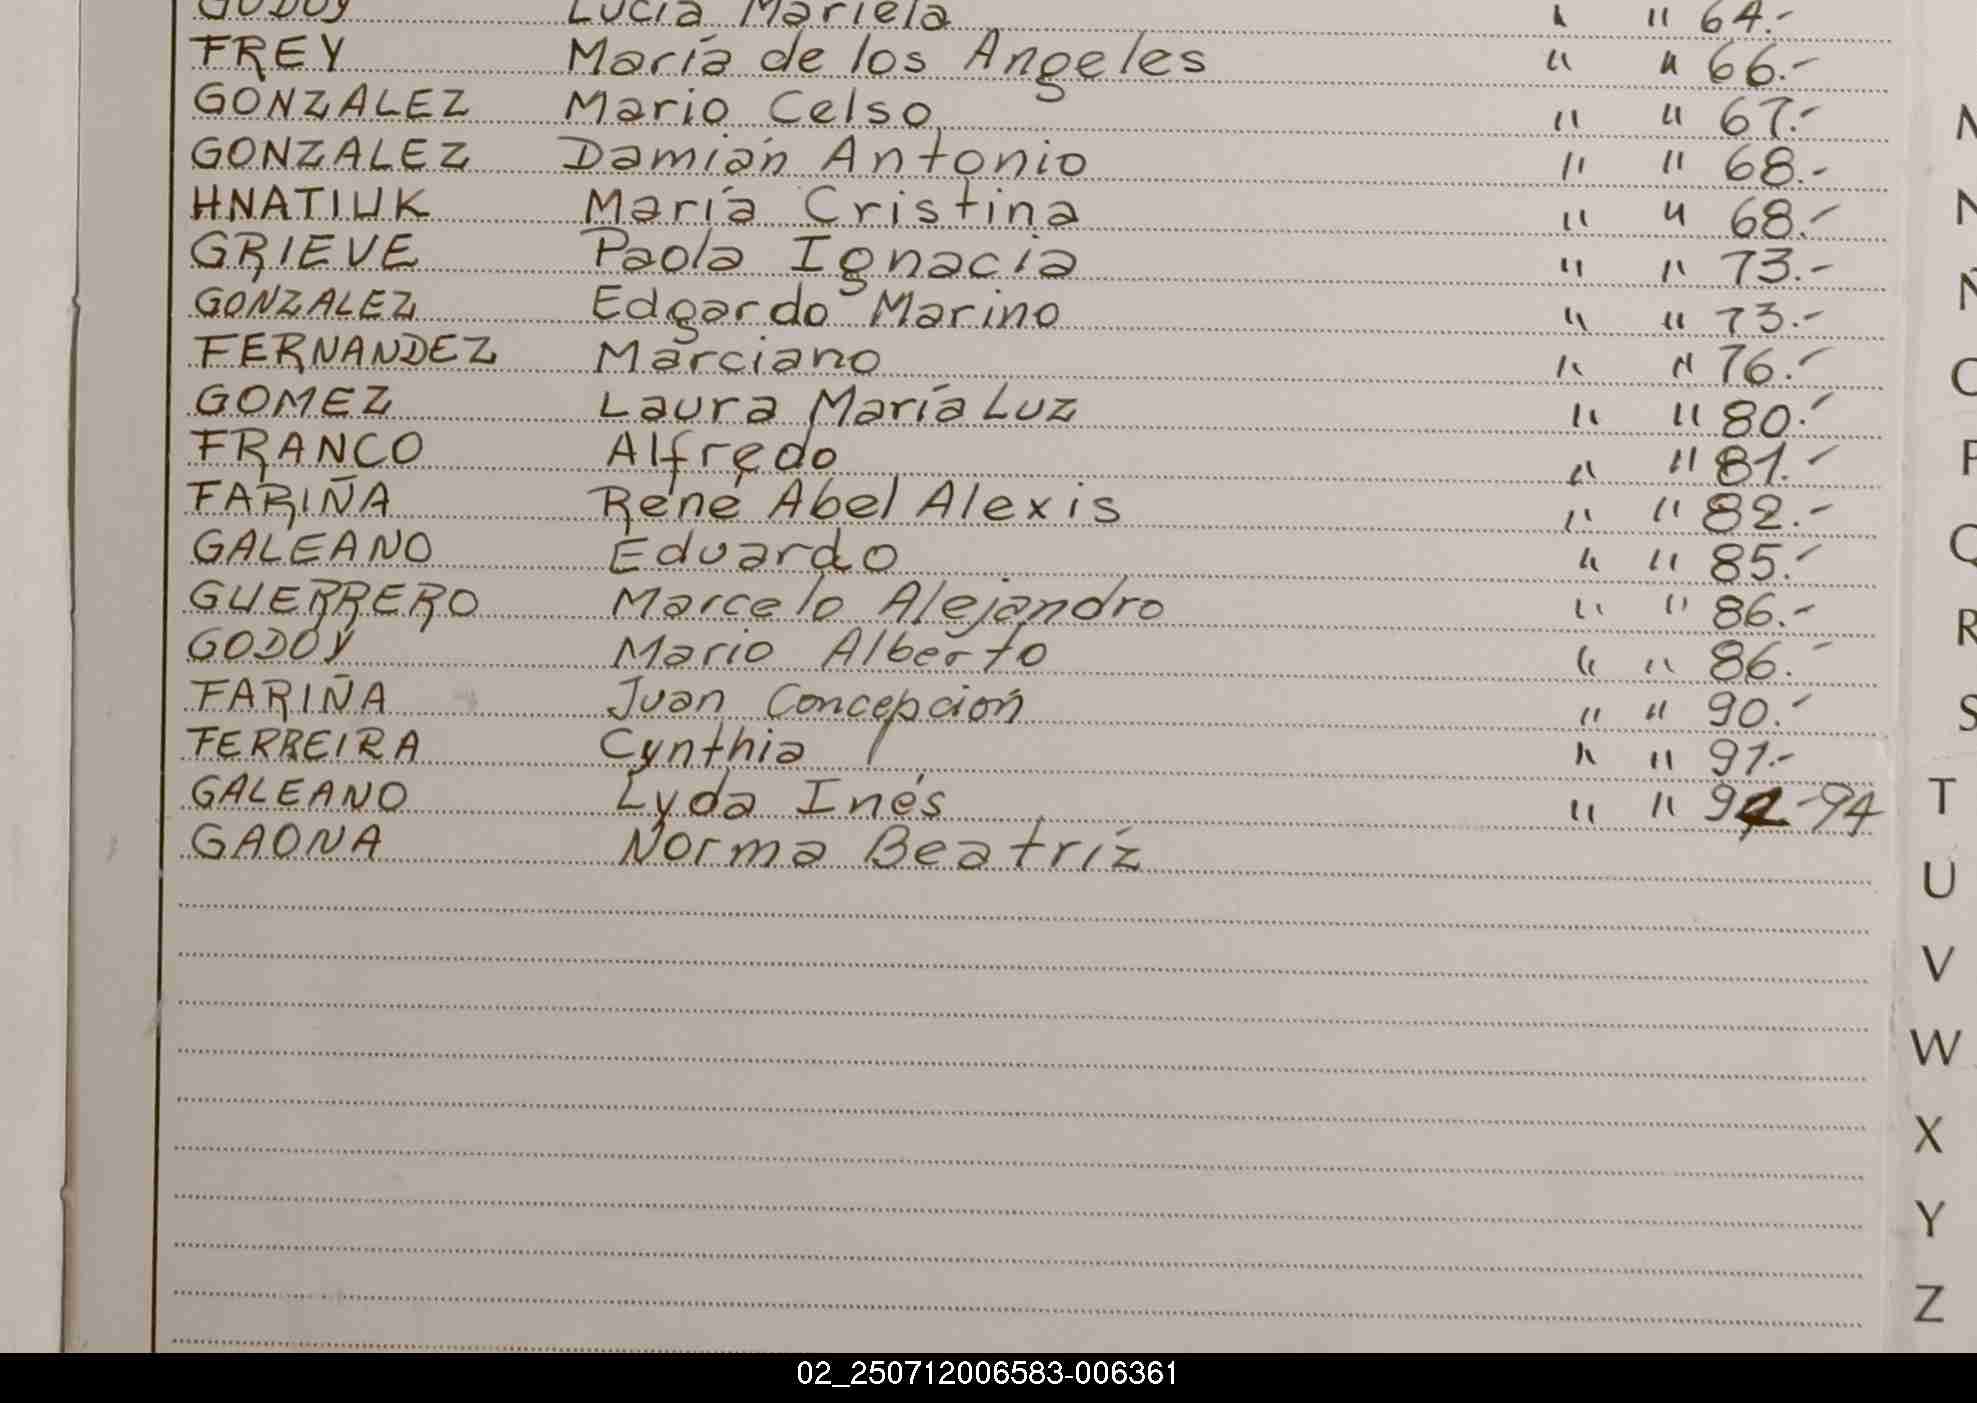 GODOY Lucía Mariela " " 64.-
FREY María de los Angeles " " 66.-
GONZALEZ Mario Celso " " 67.-
GONZALEZ Damián Antonio " " 68.-
HNATIUK María Cristina " " 68.-
GRIEVE Paola Ignacia " " 73.-
GONZALEZ Edgardo Marino " " 73.-
FERNANDEZ Marciano " " 76.-
GOMEZ Laura María Luz " " 80.-
FRANCO Alfredo " " 81.-
FARIÑA René Abel Alexis " " 82.-
GALEANO Eduardo " " 85.-
GUERRERO Marcelo Alejandro " " 86.-
GODOY Mario Alberto " " 86.-
FARIÑA Juan Concepción " " 90.-
FERREIRA Cynthia " " 91.-
GALEANO Lyda Inés " " 92-94
GAONA Norma Beatríz
N
Ñ
O
P
Q
R
S
T
U
V
W
X
Y
Z
02_250712006583-006361